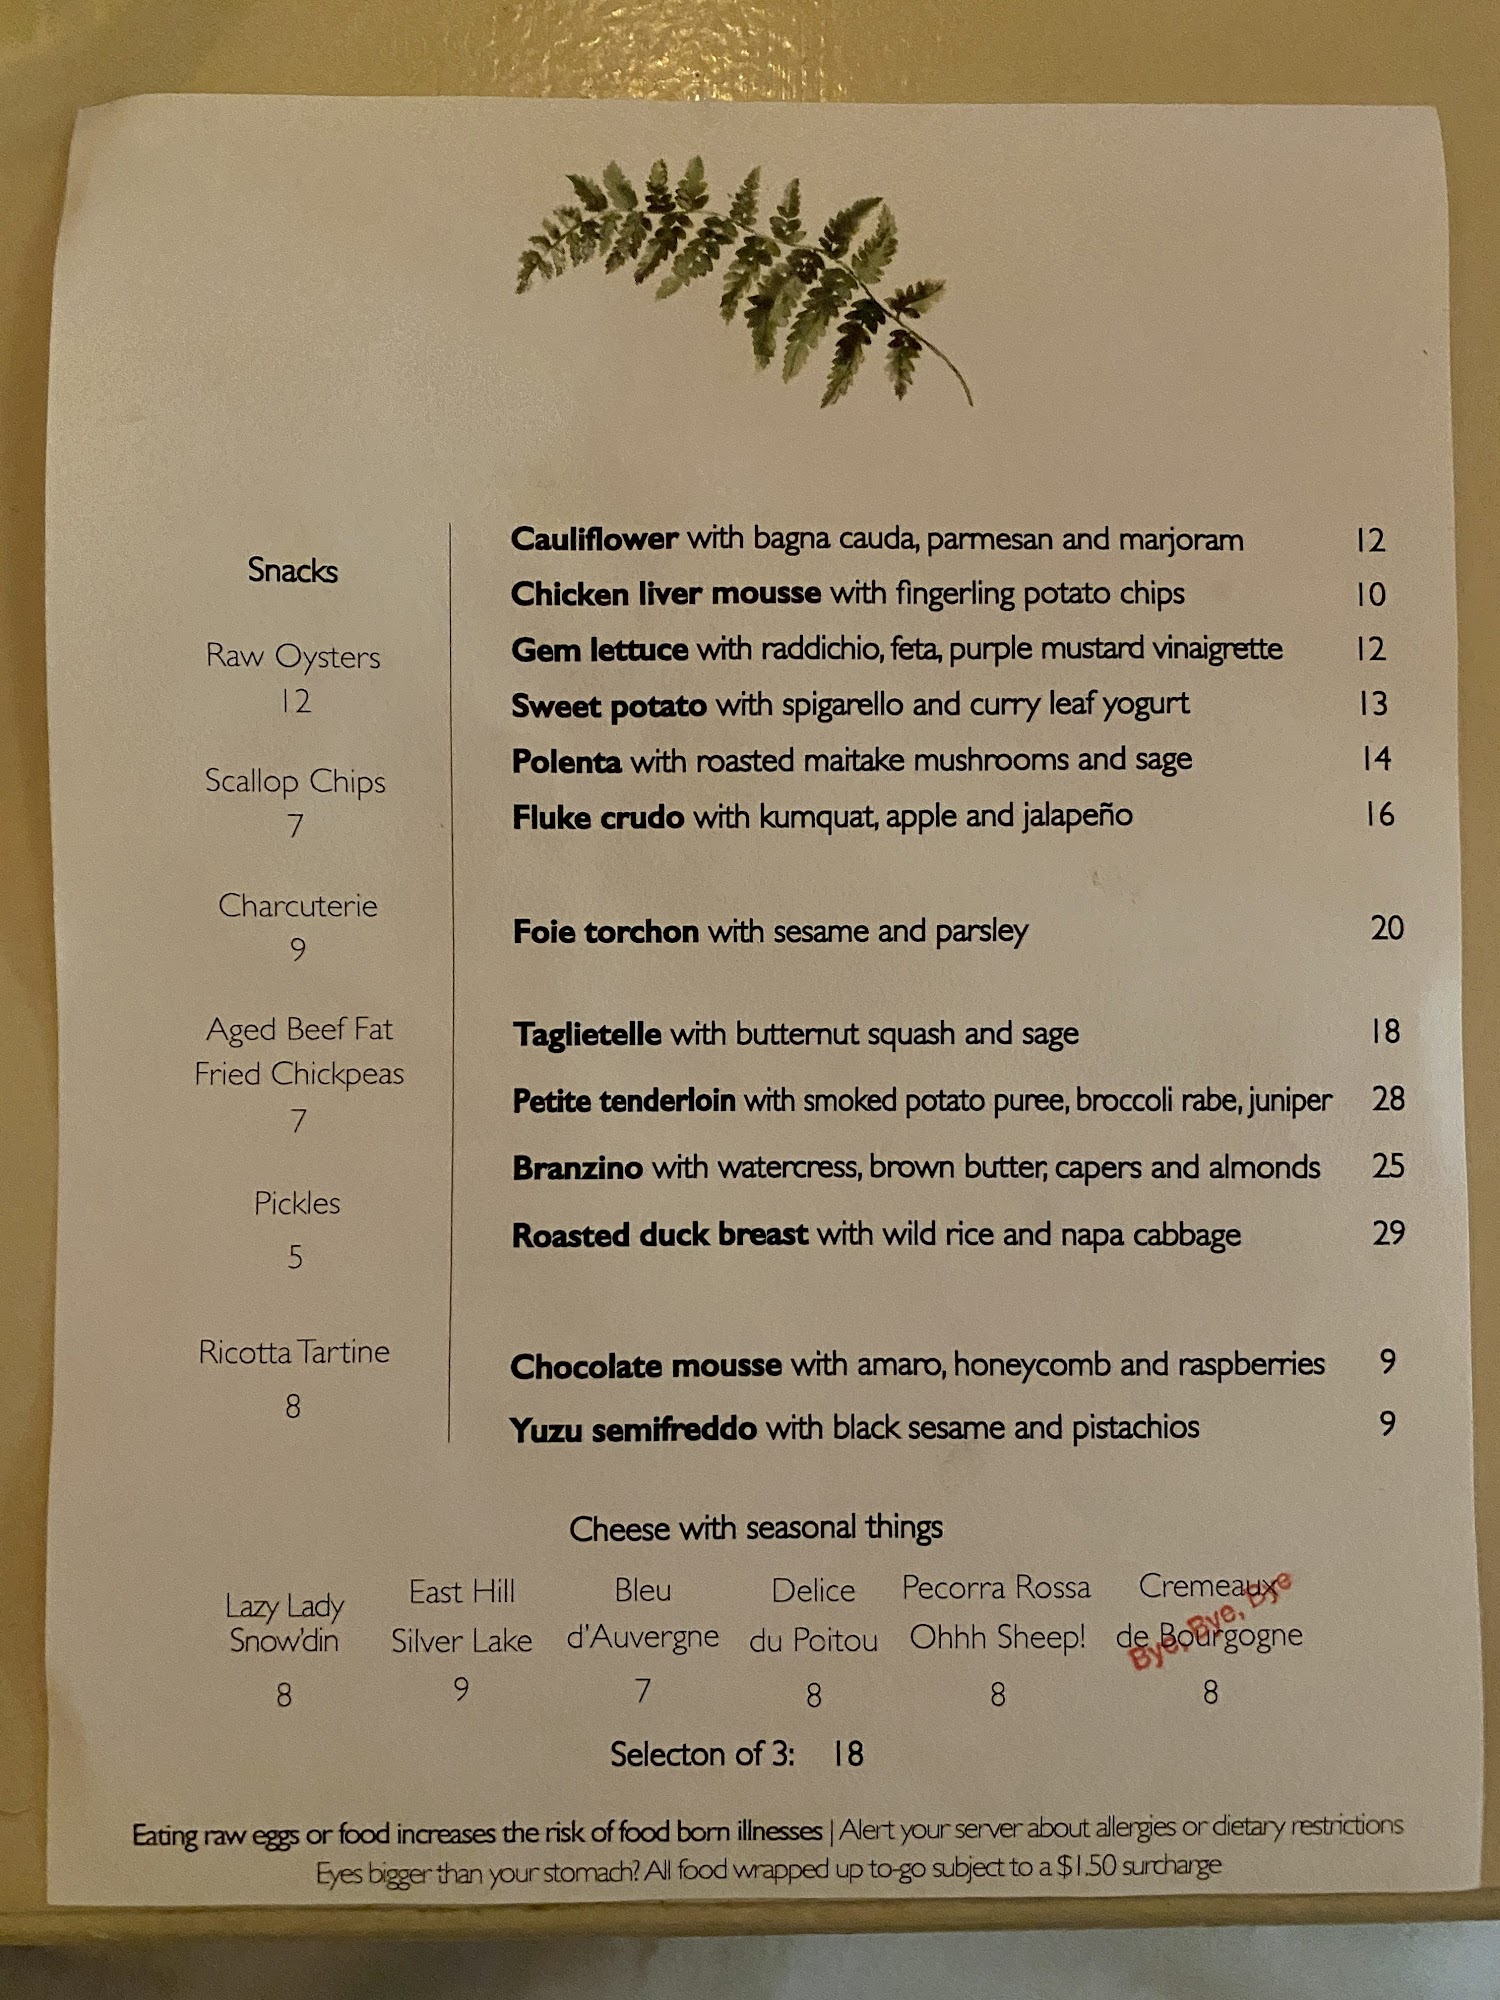 Snacks
Raw Oysters
12
Scallop Chips
7
Charcuterie
9
Aged Beef Fat
Fried Chickpeas
7
Pickles
5
Ricotta Tartine
8
Cauliflower with bagna cauda, parmesan and marjoram 12
Chicken liver mousse with fingerling potato chips 10
Gem lettuce with raddichio, feta, purple mustard vinaigrette 12
Sweet potato with spigarello and curry leaf yogurt 13
Polenta with roasted maitake mushrooms and sage 14
Fluke crudo with kumquat, apple and jalapeño 16
Foie torchon with sesame and parsley 20
Taglietelle with butternut squash and sage 18
Petite tenderloin with smoked potato puree, broccoli rabe, juniper 28
Branzino with watercress, brown butter, capers and almonds 25
Roasted duck breast with wild rice and napa cabbage 29
Chocolate mousse with amaro, honeycomb and raspberries 9
Yuzu semifreddo with black sesame and pistachios 9
Cheese with seasonal things
Lazy Lady
Snow'din
8
East Hill
Silver Lake
9
Bleu
d'Auvergne
7
Delice
du Poitou
8
Pecorra Rossa
Ohhh Sheep!
8
Cremeaux
de Bourgogne
8
Bye, Bye, Bye
Selecton of 3: 18
Eating raw eggs or food increases the risk of food born illnesses | Alert your server about allergies or dietary restrictions
Eyes bigger than your stomach? All food wrapped up to-go subject to a $1.50 surcharge